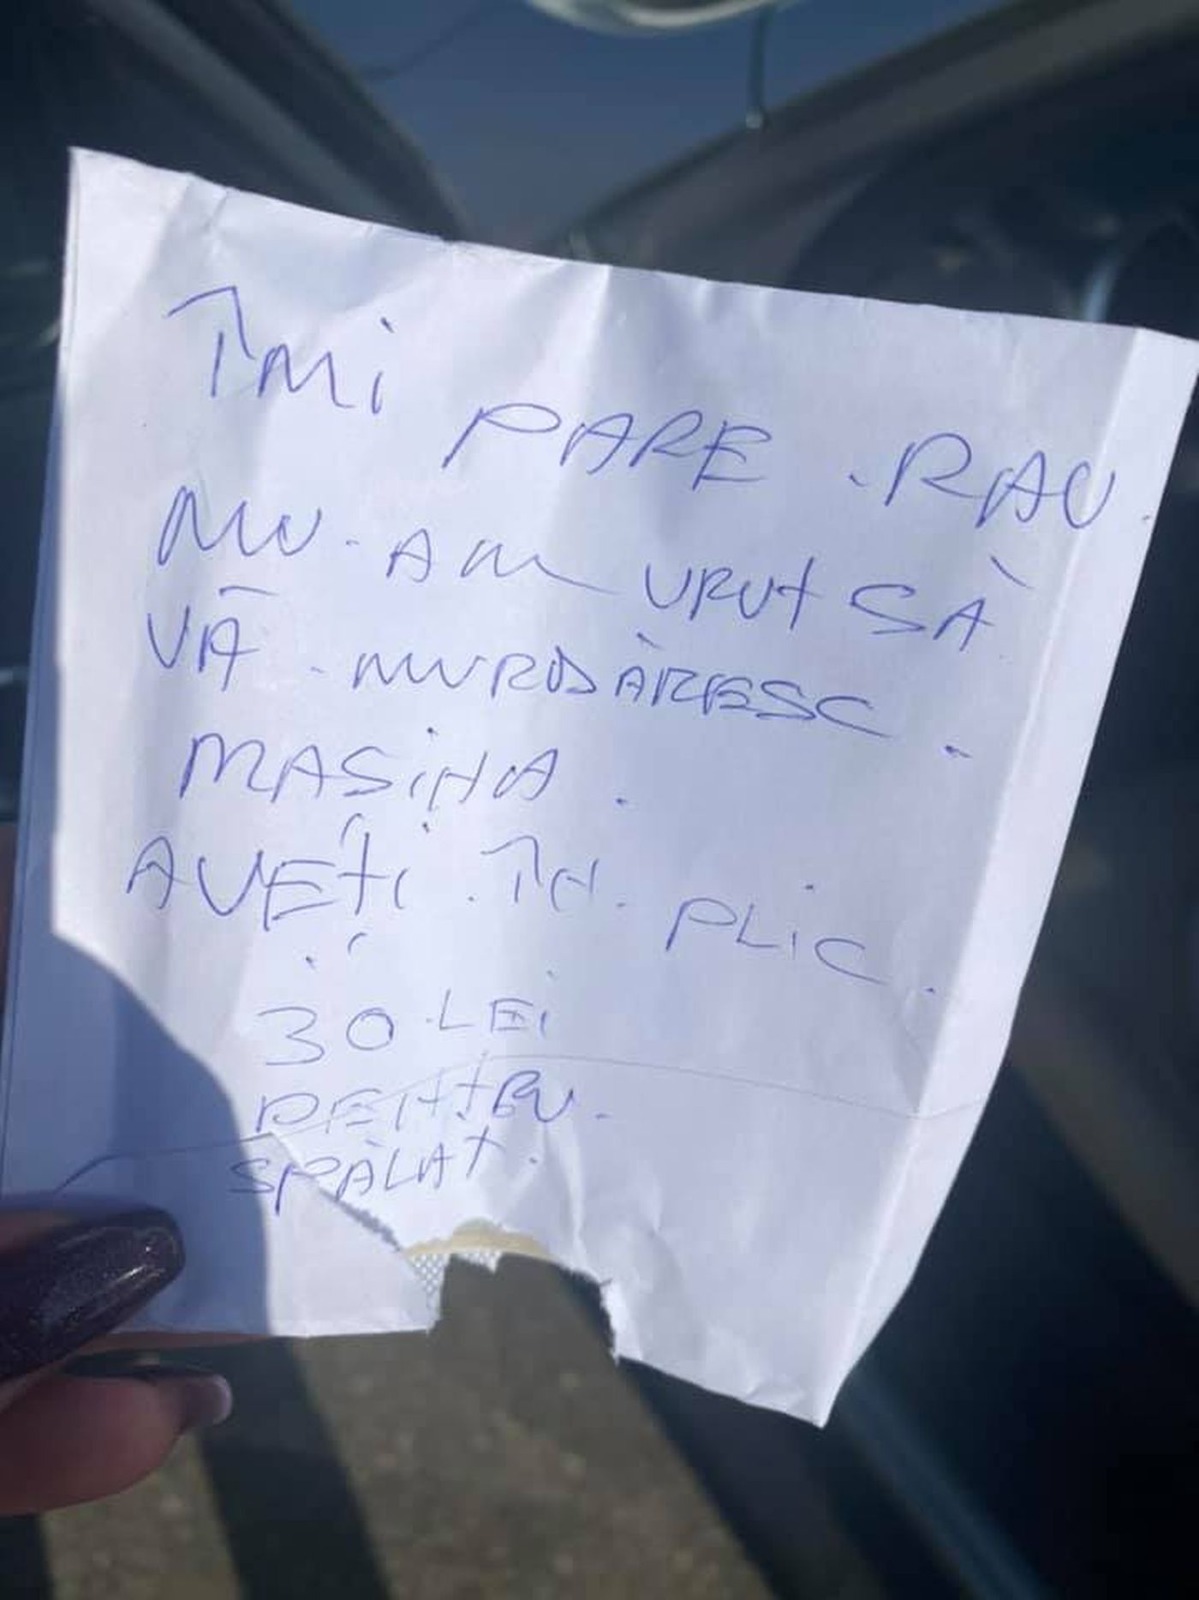 ÎMi PARE RAU.
NU AM VRUT SĂ
VĂ MURDĂRESC
MASiNA.
AVEȚi ÎN PLiC.
30 LEi
PENTRU.
SPĂLAT.